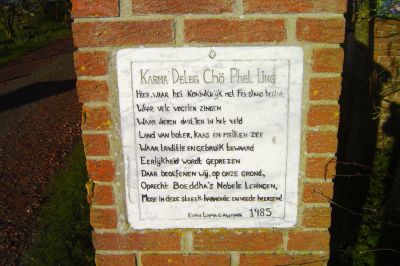 Karma Deleg Chö Phel Ling
Hier, waar het Koninkrijk met Friesland begint
Waar vele vogelen zingen
Waar dieren dartelen in het veld
Land van boter, kaas en melk en zee
Waar traditie en gebruik bewaard
Eerlijkheid wordt geprezen
Daar beoefenen wij, op onze grond,
Oprecht Boeddha's Nobele Leringen,
Moge in deze streek harmonie en vrede heersen!
1985